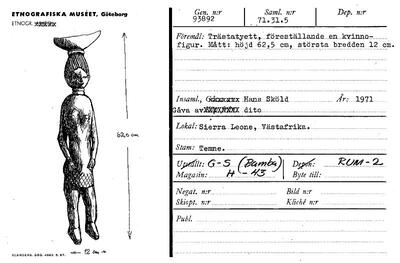 ETNOGRAFISKA MUSÉET, Göteborg
ETNOGR.
62,5 cm
12 cm
ELANDERS, GBG 4982 5. 67.
Gen. n:r
93892
Saml. n:r
71.31.5
Dep. n:r
Föremål: Trästatyett, föreställande en kvinno-
figur. Mått: höjd 62,5 cm, största bredden 12 cm.
Insaml., Hans Sköld År: 1971
Gåva av dito
Lokal: Sierra Leone, Västafrika.
Stam: Temne.
Uppställt: G-S (Bamba) Depon: RUM-2
Magasin: H-43 Byte till:
Negat. n:r Bild n:r
Skiopt. n:r Kliché n:r
Publ.